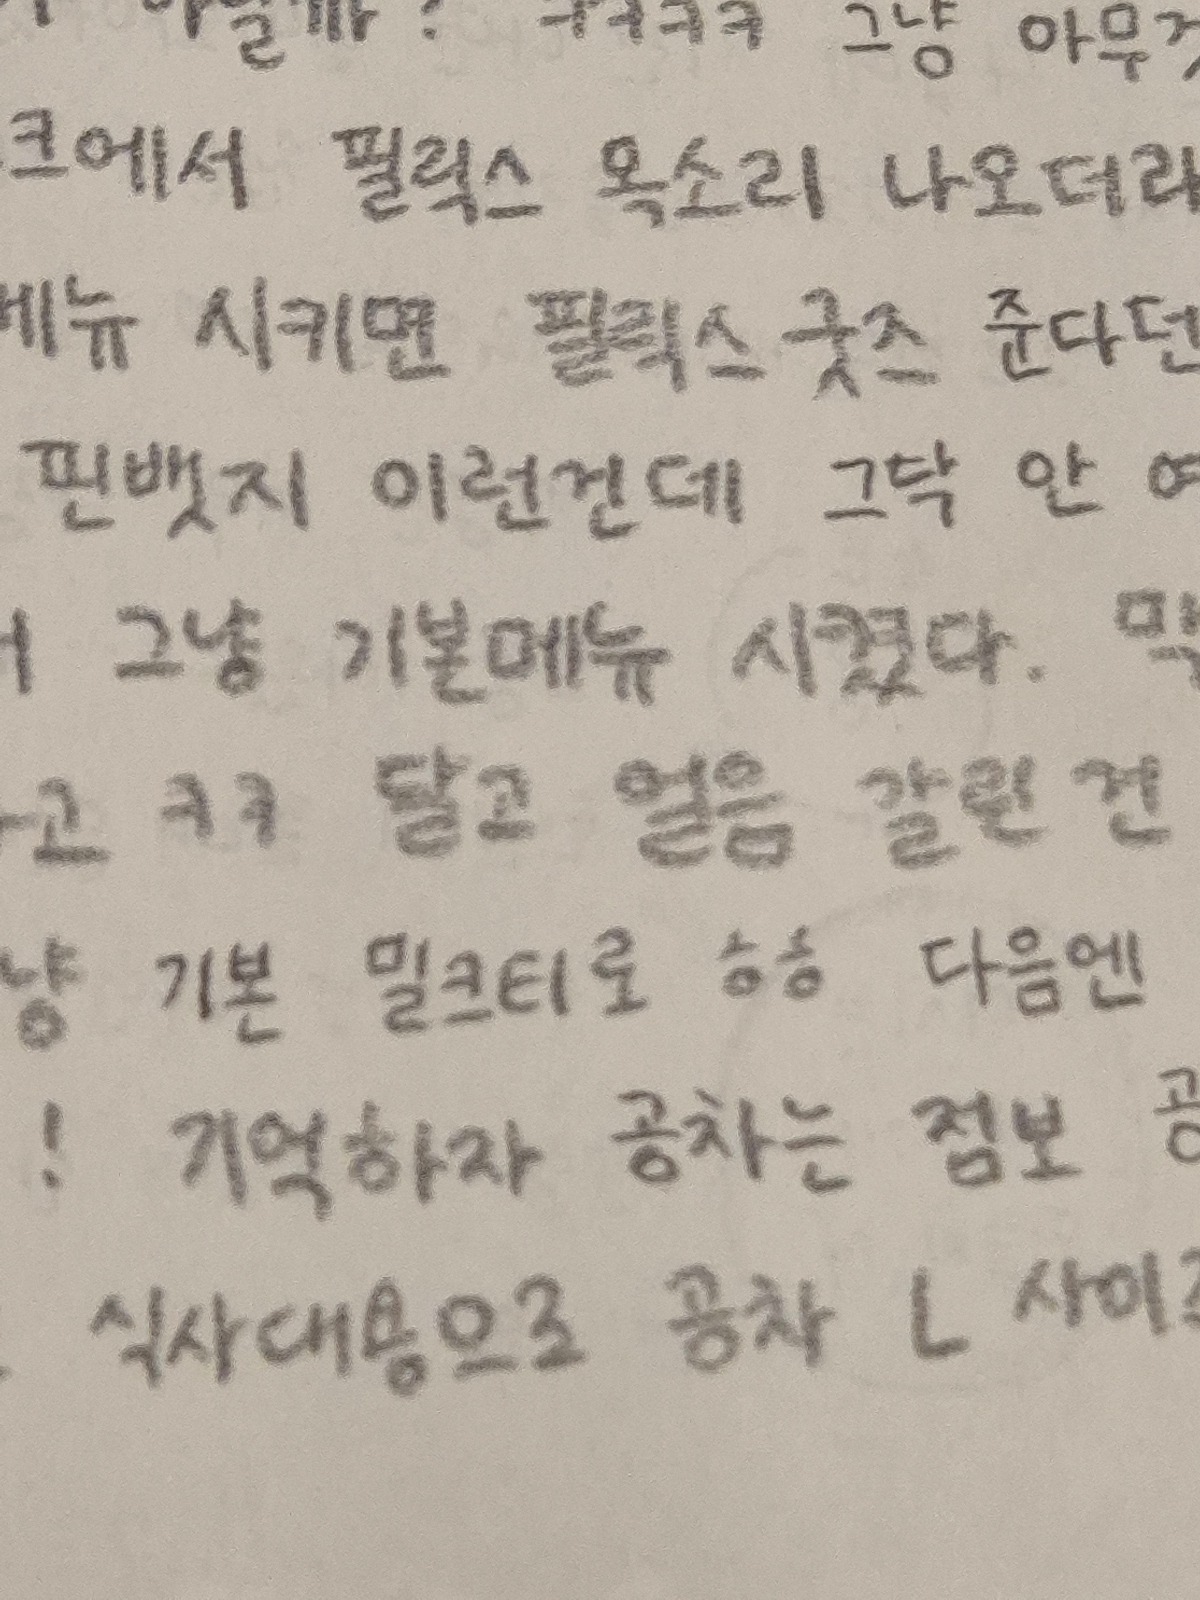 아닐까? ㅋㅋㅋㅋ 그냥 아무
크에서 필릭스 목소리 나오더라
메뉴 시키면 필릭스 굿즈 준다던
핀뱃지 이런건데 그닥 안
그냥 기본메뉴 시켰다.
고 ㅋㅋ 달고 얼음 갈린 건
냥 기본 밀크티로 ㅎㅎ 다음엔
! 기억하자 공차는 점보
식사대용으로 공차 L 사이